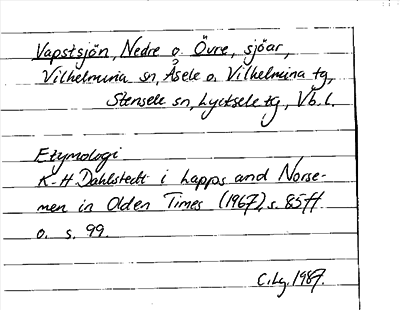 Vapstsjön, Nedre o. Övre, sjöar,
Vilhelmina sn, Åsele o. Vilhelmina tg,
Stensele sn, Lycksele tg, Vb. l.
Etymologi
K-H Dahlstedt i Lapps and Norse-
men in Olden Times (1967), s. 85 ff
o. s. 99.
C. Lg. 1987.